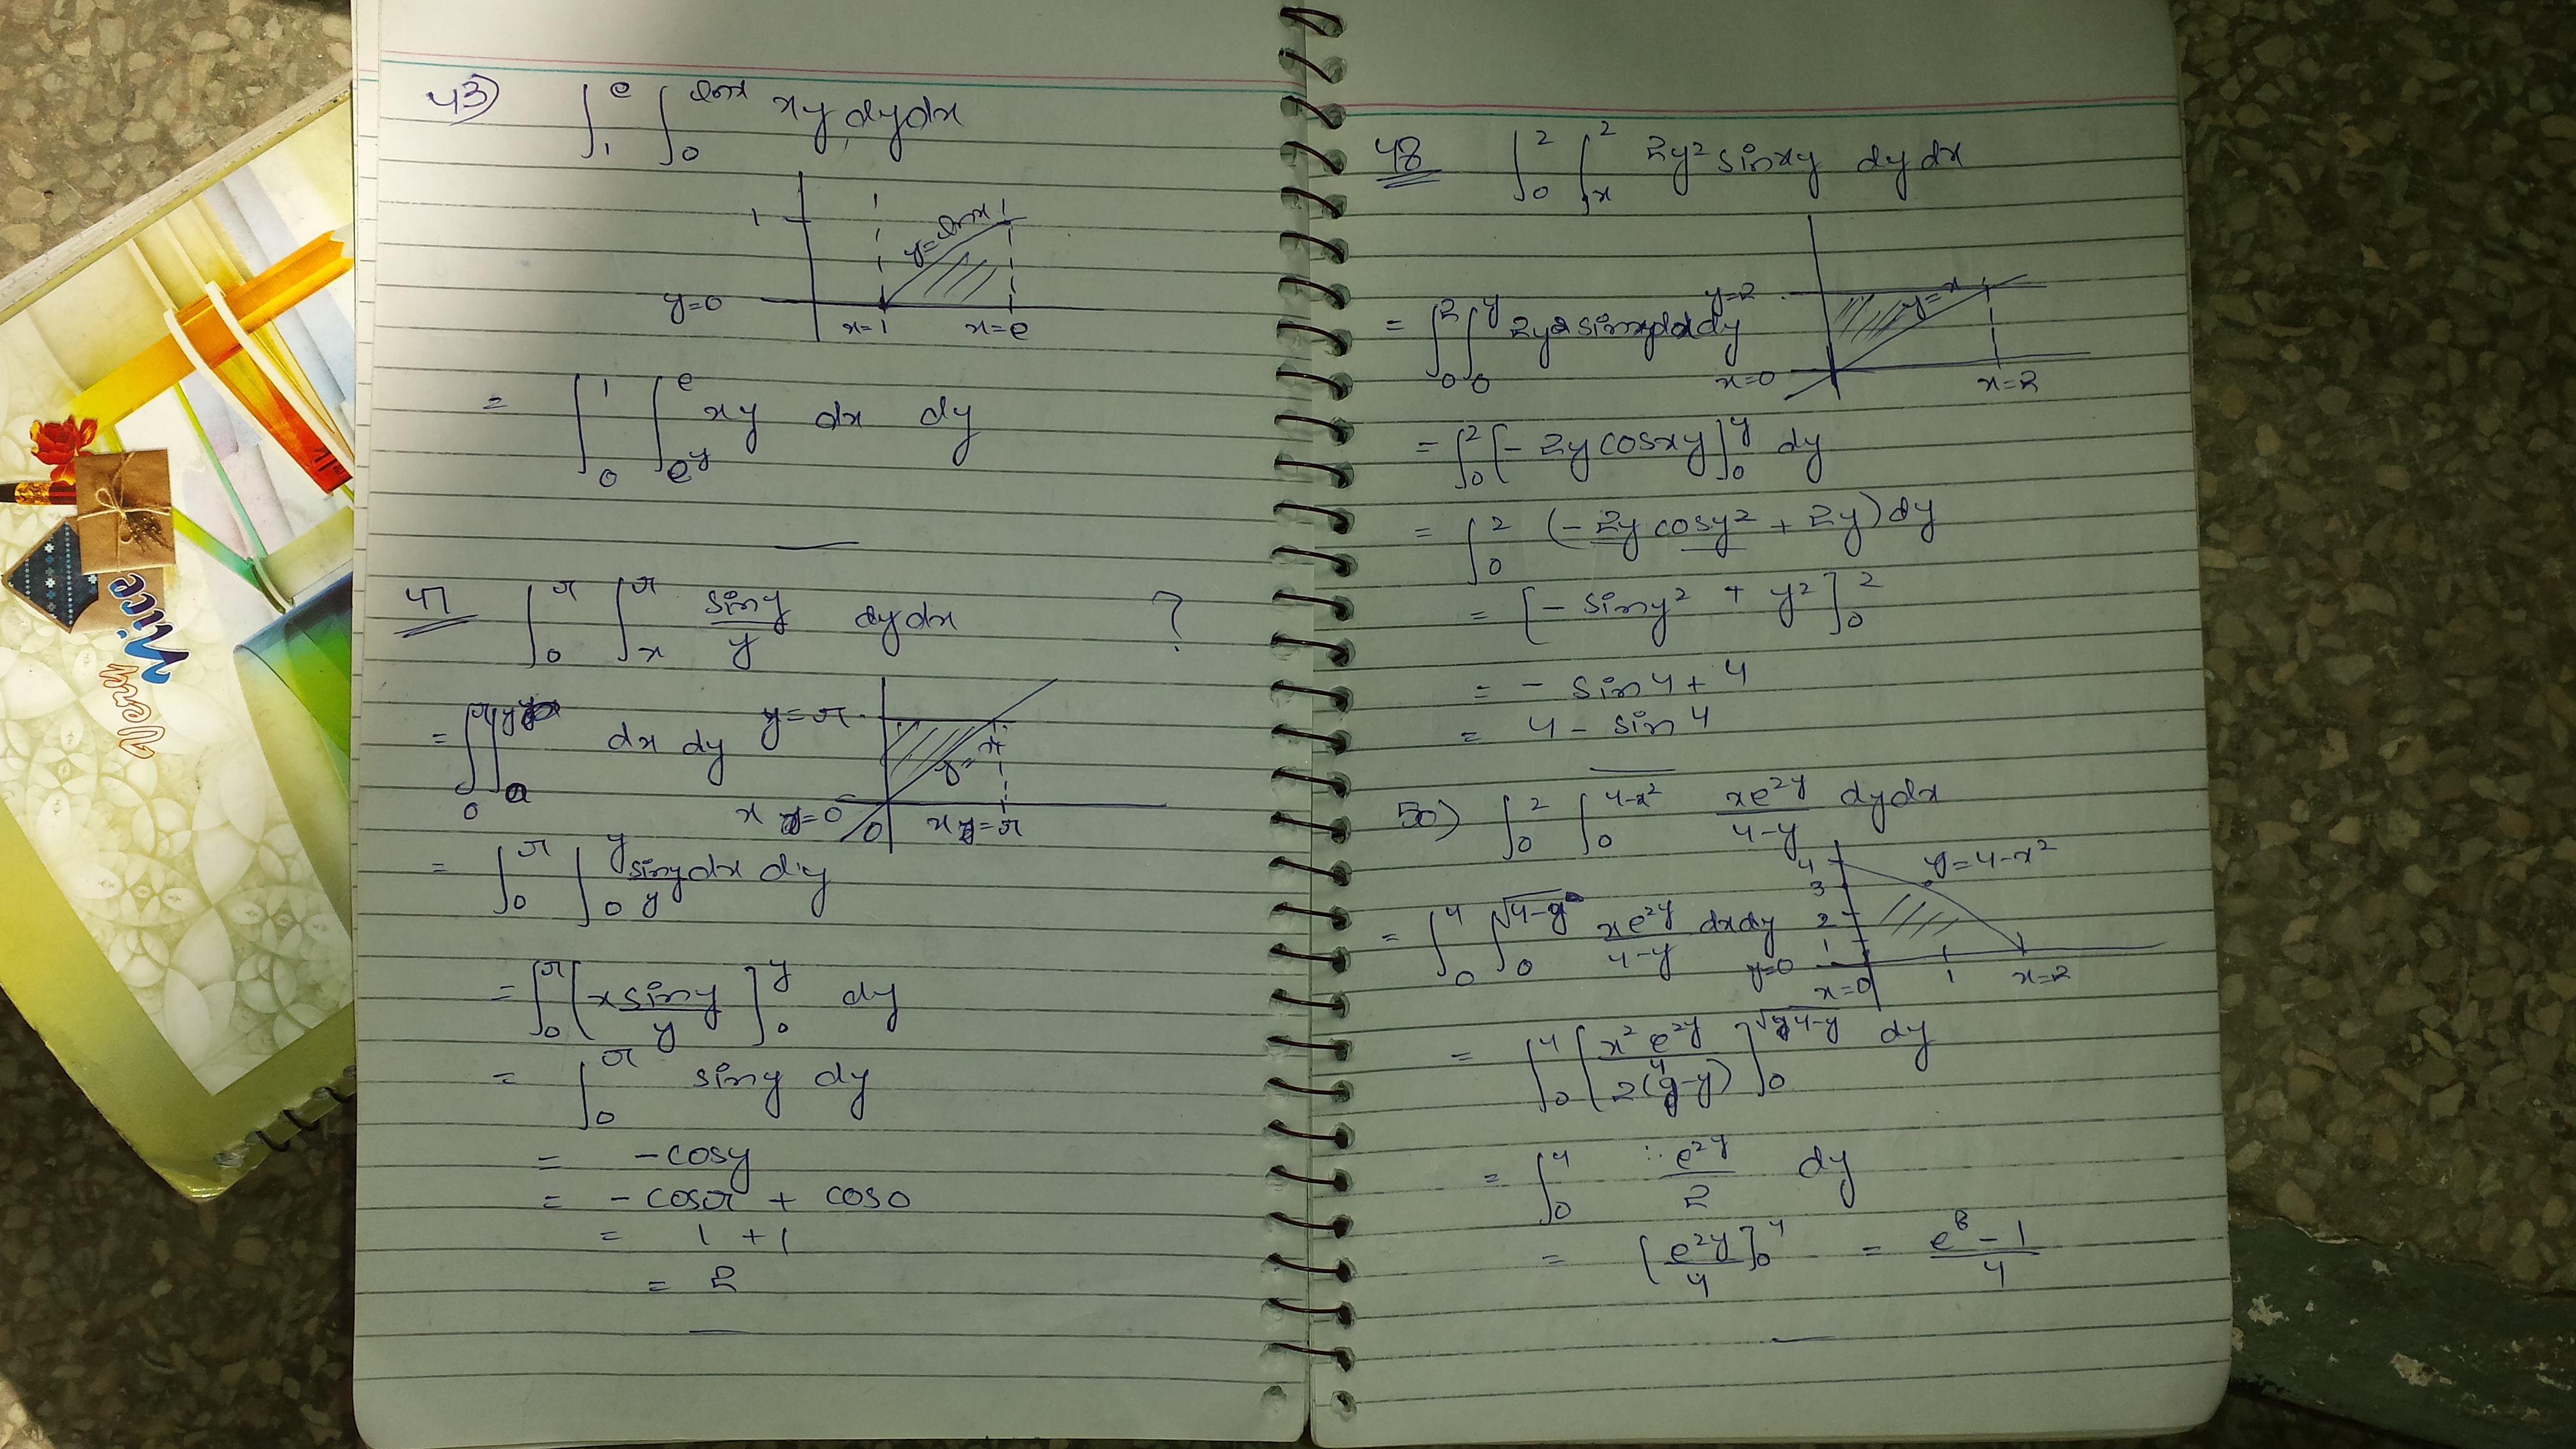 43) ∫₁^e ∫₀^lnx xy dydx
1
y=lnx
y=0
x=1 x=e
= ∫₀^1 ∫_{e^y}^e xy dx dy
47 ∫₀^π ∫_x^π siny/y dydx ?
= ∫₀^π ∫₀^y dx dy
y=π
y=x
x=0 0 x=π
= ∫₀^π ∫₀^y siny/y dx dy
= ∫₀^π [x siny/y]₀^y dy
= ∫₀^π siny dy
= -cosy
= -cosπ + cos0
= 1 + 1
= 2
48 ∫₀^2 ∫_x^2 2y² sinxy dydx
= ∫₀^2 ∫₀^y 2y² sinxy dx dy
y=2 y=x
x=0 x=2
= ∫₀^2 [- 2y cosxy]₀^y dy
= ∫₀^2 (- 2y cosy² + 2y) dy
= [- siny² + y²]₀^2
= - sin4 + 4
= 4 - sin4
50) ∫₀^2 ∫₀^{4-x²} xe^{2y}/(4-y) dydx
y=4-x²
4
3
2
1
= ∫₀^4 ∫₀^{√(4-y)} xe^{2y}/(4-y) dxdy
y=0
x=0 1 x=2
= ∫₀^4 [x² e^{2y}/2(4-y)]₀^{√(4-y)} dy
= ∫₀^4 e^{2y}/2 dy
= [e^{2y}/4]₀^4 = (e^8 - 1)/4
Nice